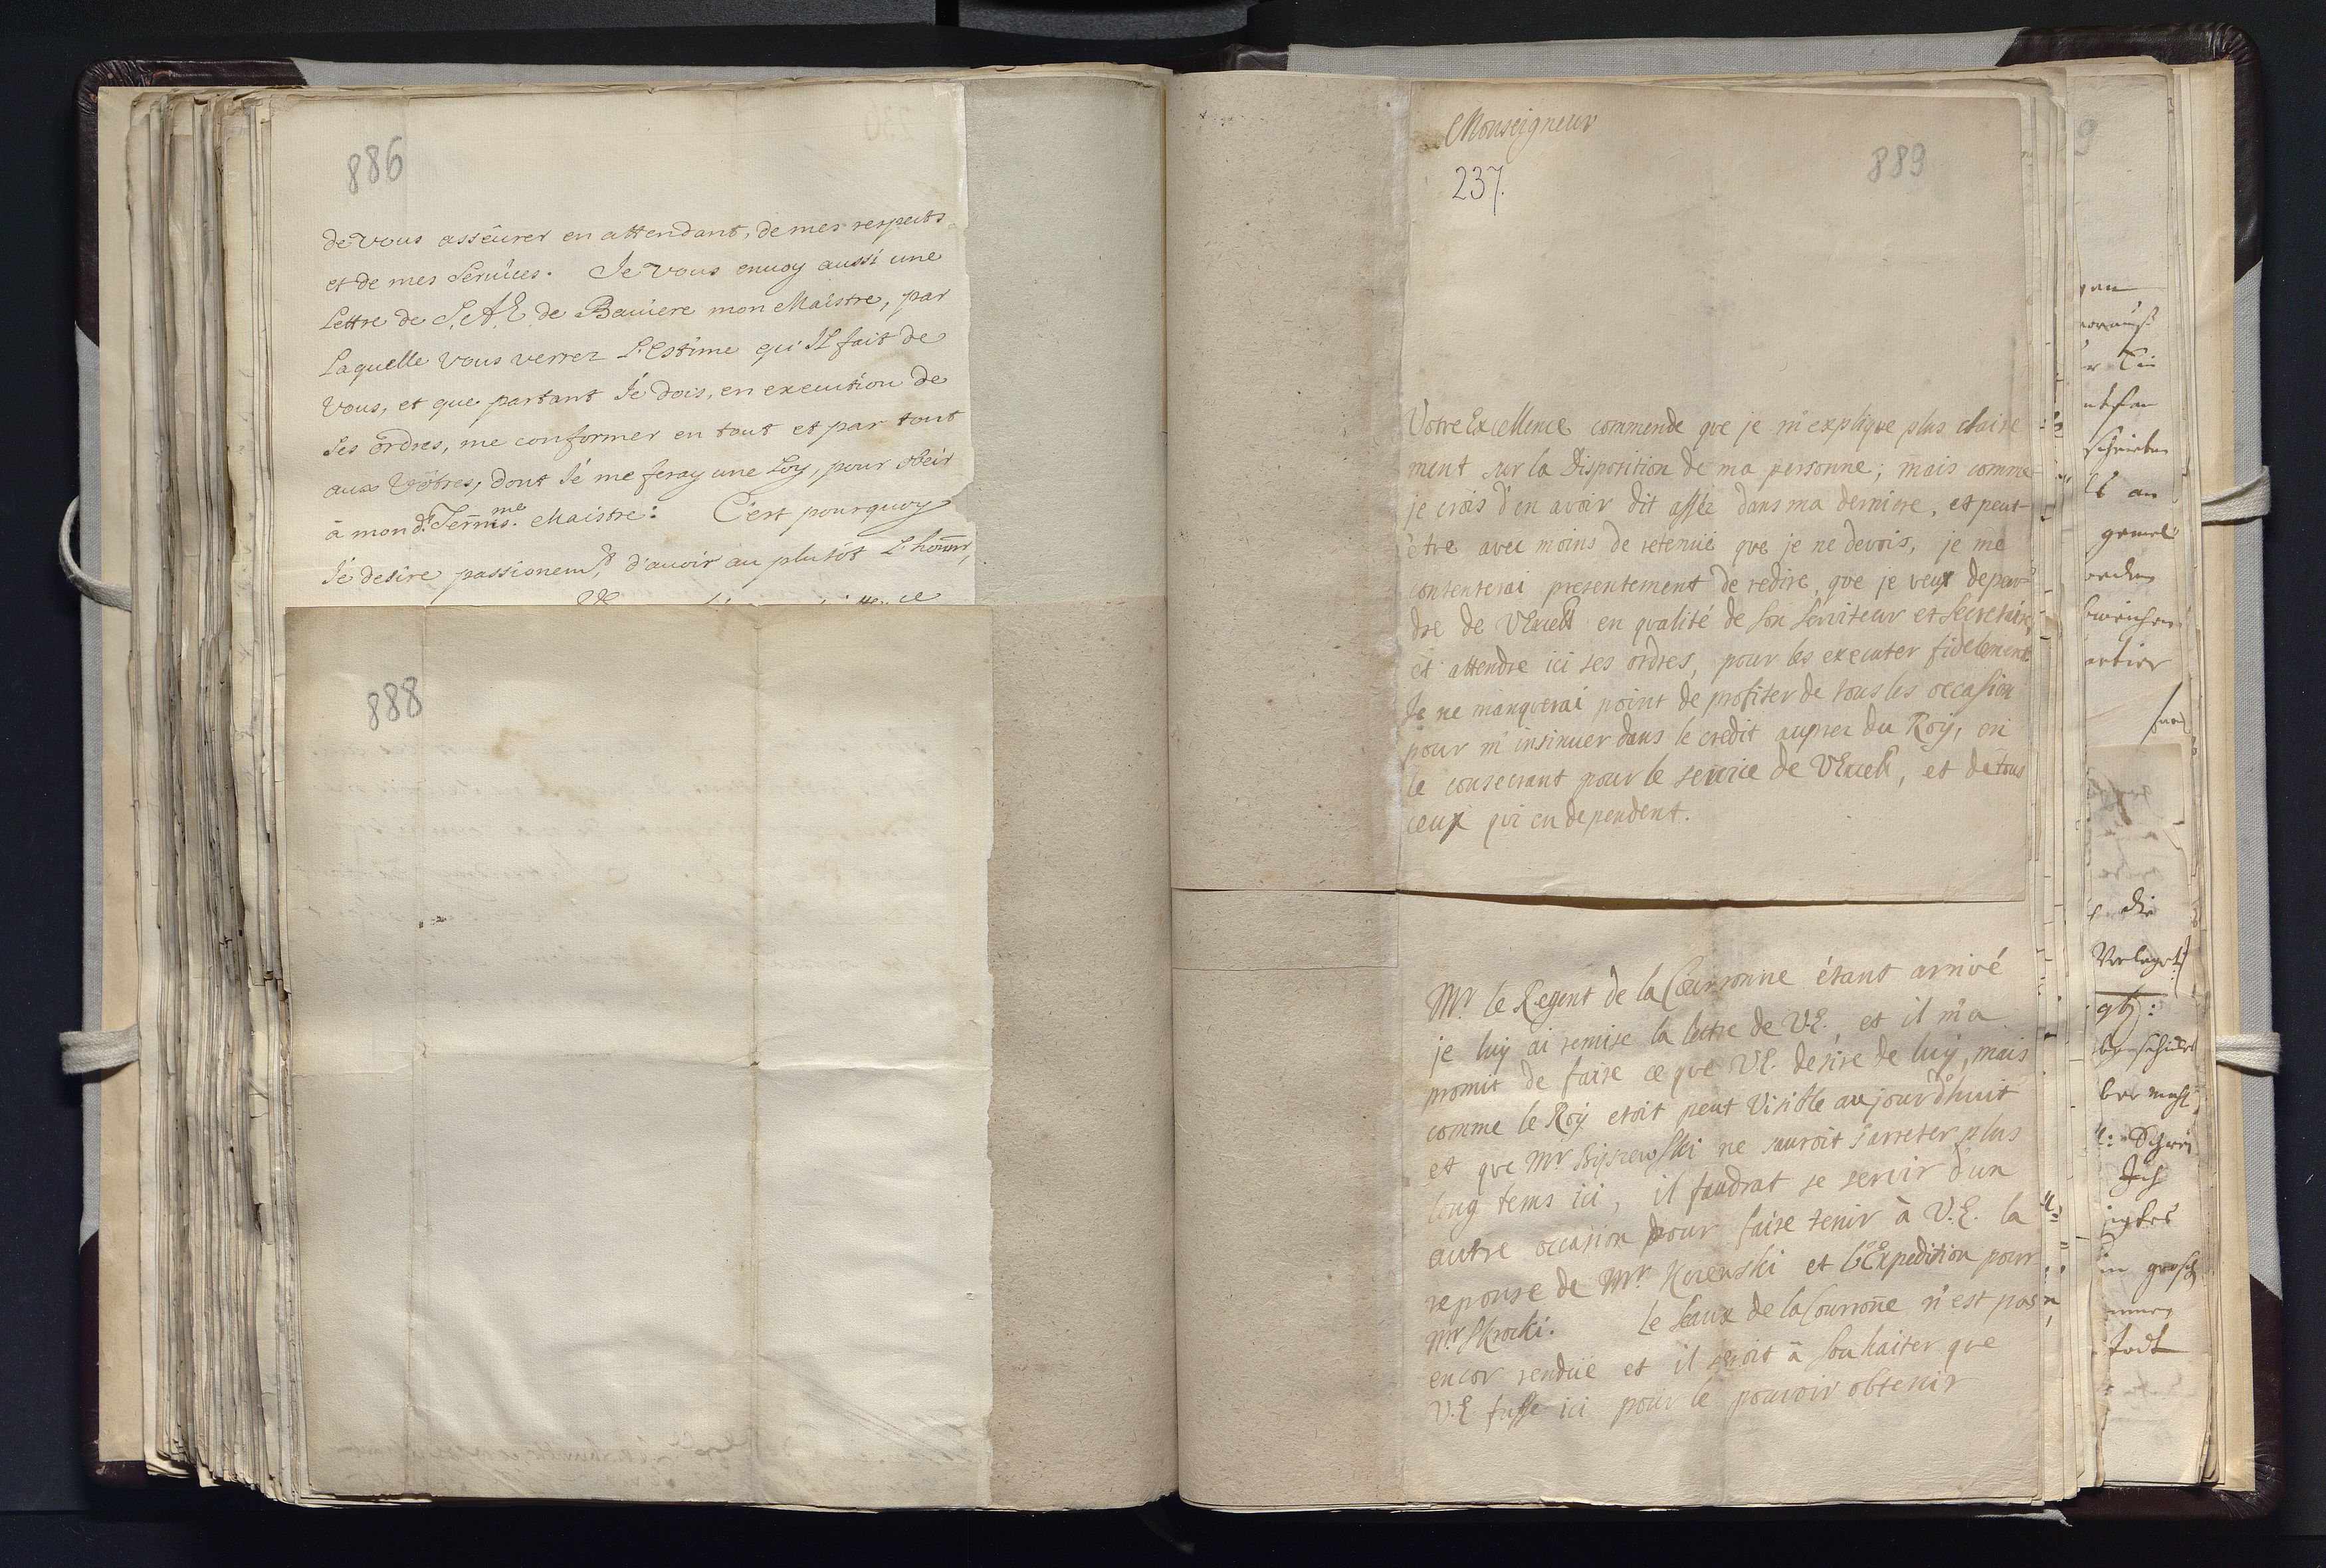 886
de vous asseurer en attendant, de mes respects
et de mes Seruices. Je vous enuoy aussi une
Lettre de S. A. E. de Bauiere mon Maistre, par
Laquelle vous verrez L'Estime qu'Il fait de
vous, et que partant Je dois, en execution de
Ses ordres, me conformer en tout et par tout
aux Vôtres, dont Je me feray une Loy, pour obeir
à mon d.t Sernis.me Maistre: C'est pourquoy
Je desire passionemt, d'auoir au plutôt L'honnr,
888
Monseigneur
237.
889
Votre Excellence commende que je m'explique plus claire
ment sur la Disposition de ma personne; mais comme
je crois d'en avoir dit assez dans ma derniere, et peut-
être avec moins de retenuë que je ne devois, je me
contenterai presentement de redire, que je veux depen-
dre de VExcell en qvalité de Son Serviteur et Secretaire,
et attendre ici ses ordres, pour les executer fidelement
Je ne manquerai point de profiter de tous les occasion
pour m'insinuer dans le credit auprez du Roy, en
le consecrant pour le service de VExcell, et de tous
ceux qvi en dependent.
Mr. le Regent de la Courronne étant arrivé
je luy ai remise la lettre de V.E., et il m'a
promit de faire ce qve V.E. desire de luy, mais
comme le Roy etoit peut visible aujourd'huit
et qve Mr Sijszewski ne sauroit s'arreter plus
long tems ici, il faudrat se servir d'un
autre occasion pour faire tenir à V.E. la
reponse de Mr. Korewski et l'Expedition pour
Mr. Skrocki. Le Seaux de la Couronne n'est pas
encor rendüe et il seroit à souhaiter qve
V.E fusse ici pour le pouvoir obtenir
die
gtz:
Ich
todt